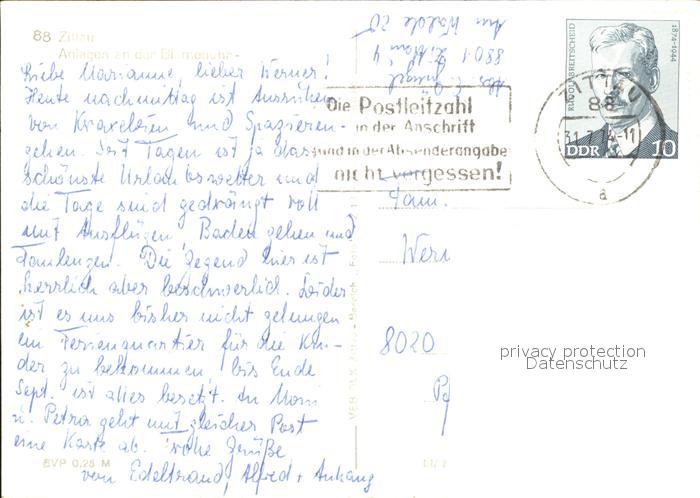 88 Zittau
Anlagen an der Blumenuhr
Liebe Marianne, lieber Werner!
Heute nachmittag ist Ausruhen
von Kraxeleien und Spazieren-
gehen. Seit Tagen ist ja das
schönste Urlaubswetter und
die Tage sind gedrängt voll
mit Ausflügen, Baden gehen und
Faulenzen. Die Gegend hier ist
herrlich aber beschwerlich. Leider
ist es uns bisher nicht gelungen
ein Ferienquartier für die Kin-
der zu bekommen, bis Ende
Sept. ist alles besetzt. An Moni
u. Petra geht mit gleicher Post
eine Karte ab. Frohe Grüße
von Edeltraud, Alfred + Anhang
EVP 0,25 M
Abs. E.
8801
Am Walde 20
Die Postleitzahl
in der Anschrift
und in der Absenderangabe
nicht vergessen!
ZITTAU
88
31.7.74-11
a
RUDOLF BREITSCHEID
1874-1944
DDR 10
Fam.
Wern
8020
privacy protection
Datenschutz